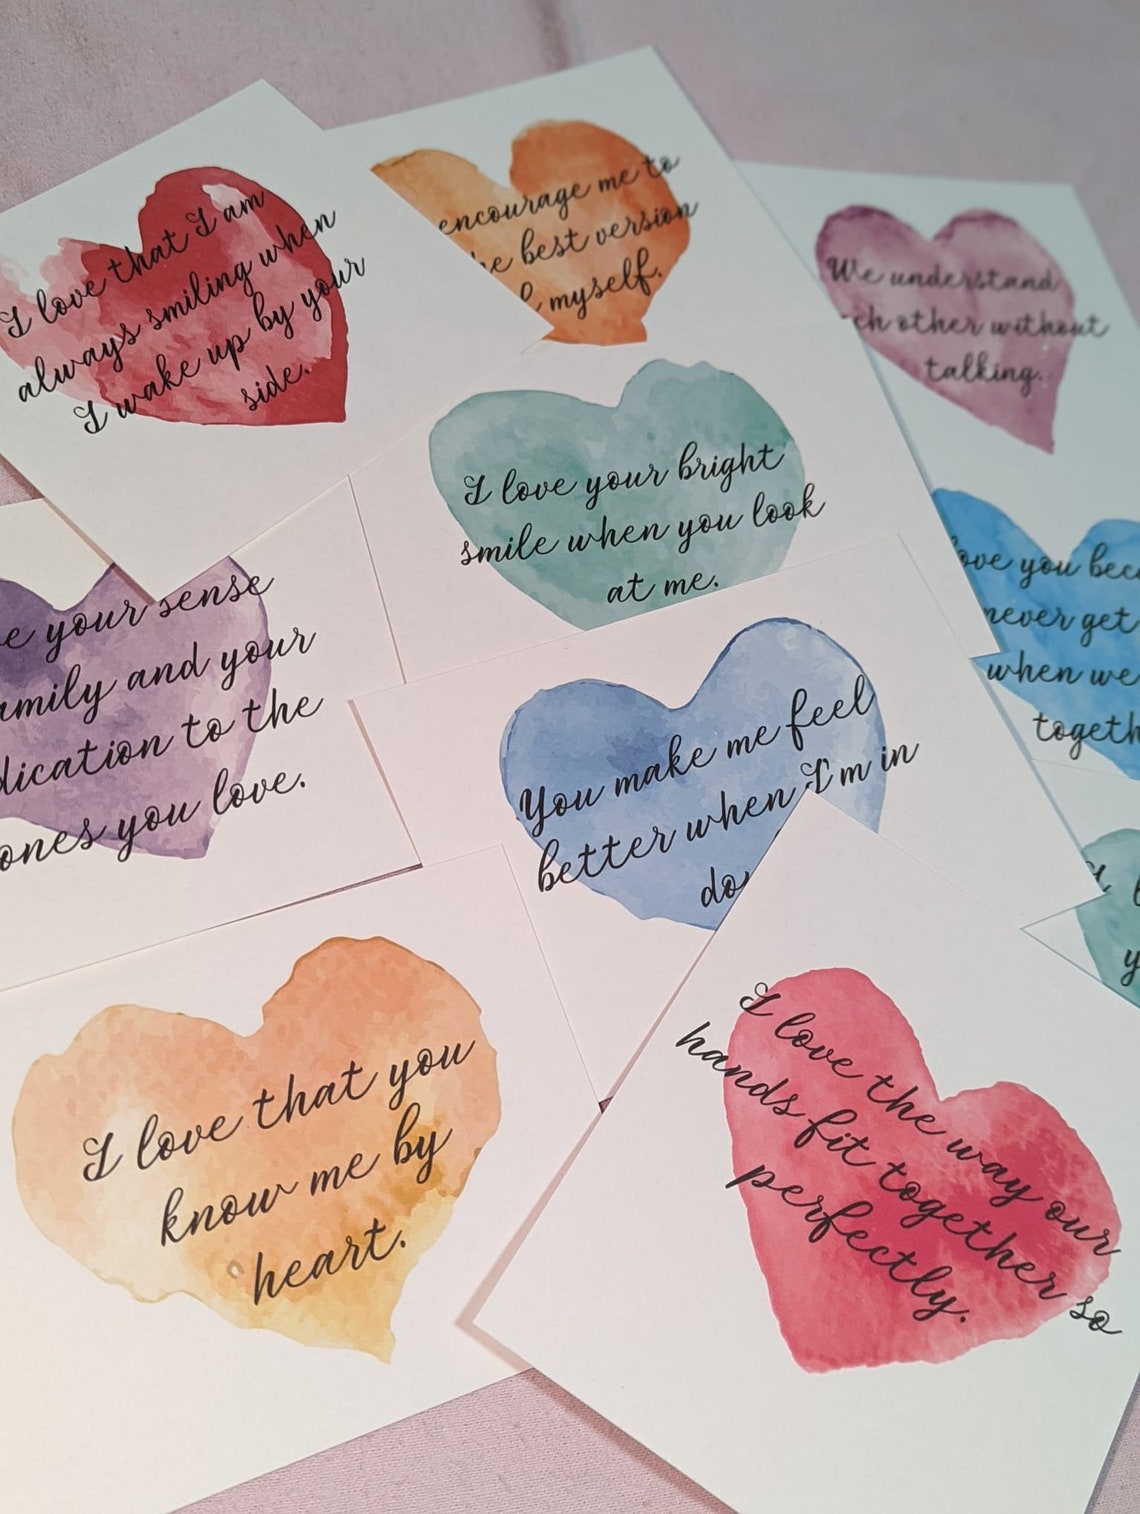 I love that I am
always smiling when
I wake up by your
side.
encourage me to
best version
myself.
We understand
other without
talking.
I love your bright
smile when you look
at me.
you
never get
when we
your sense
and your
to the
ones you love.
You make me feel
better when I'm in
I love that you
know me by
heart.
I love the way our
hands fit together so
perfectly.